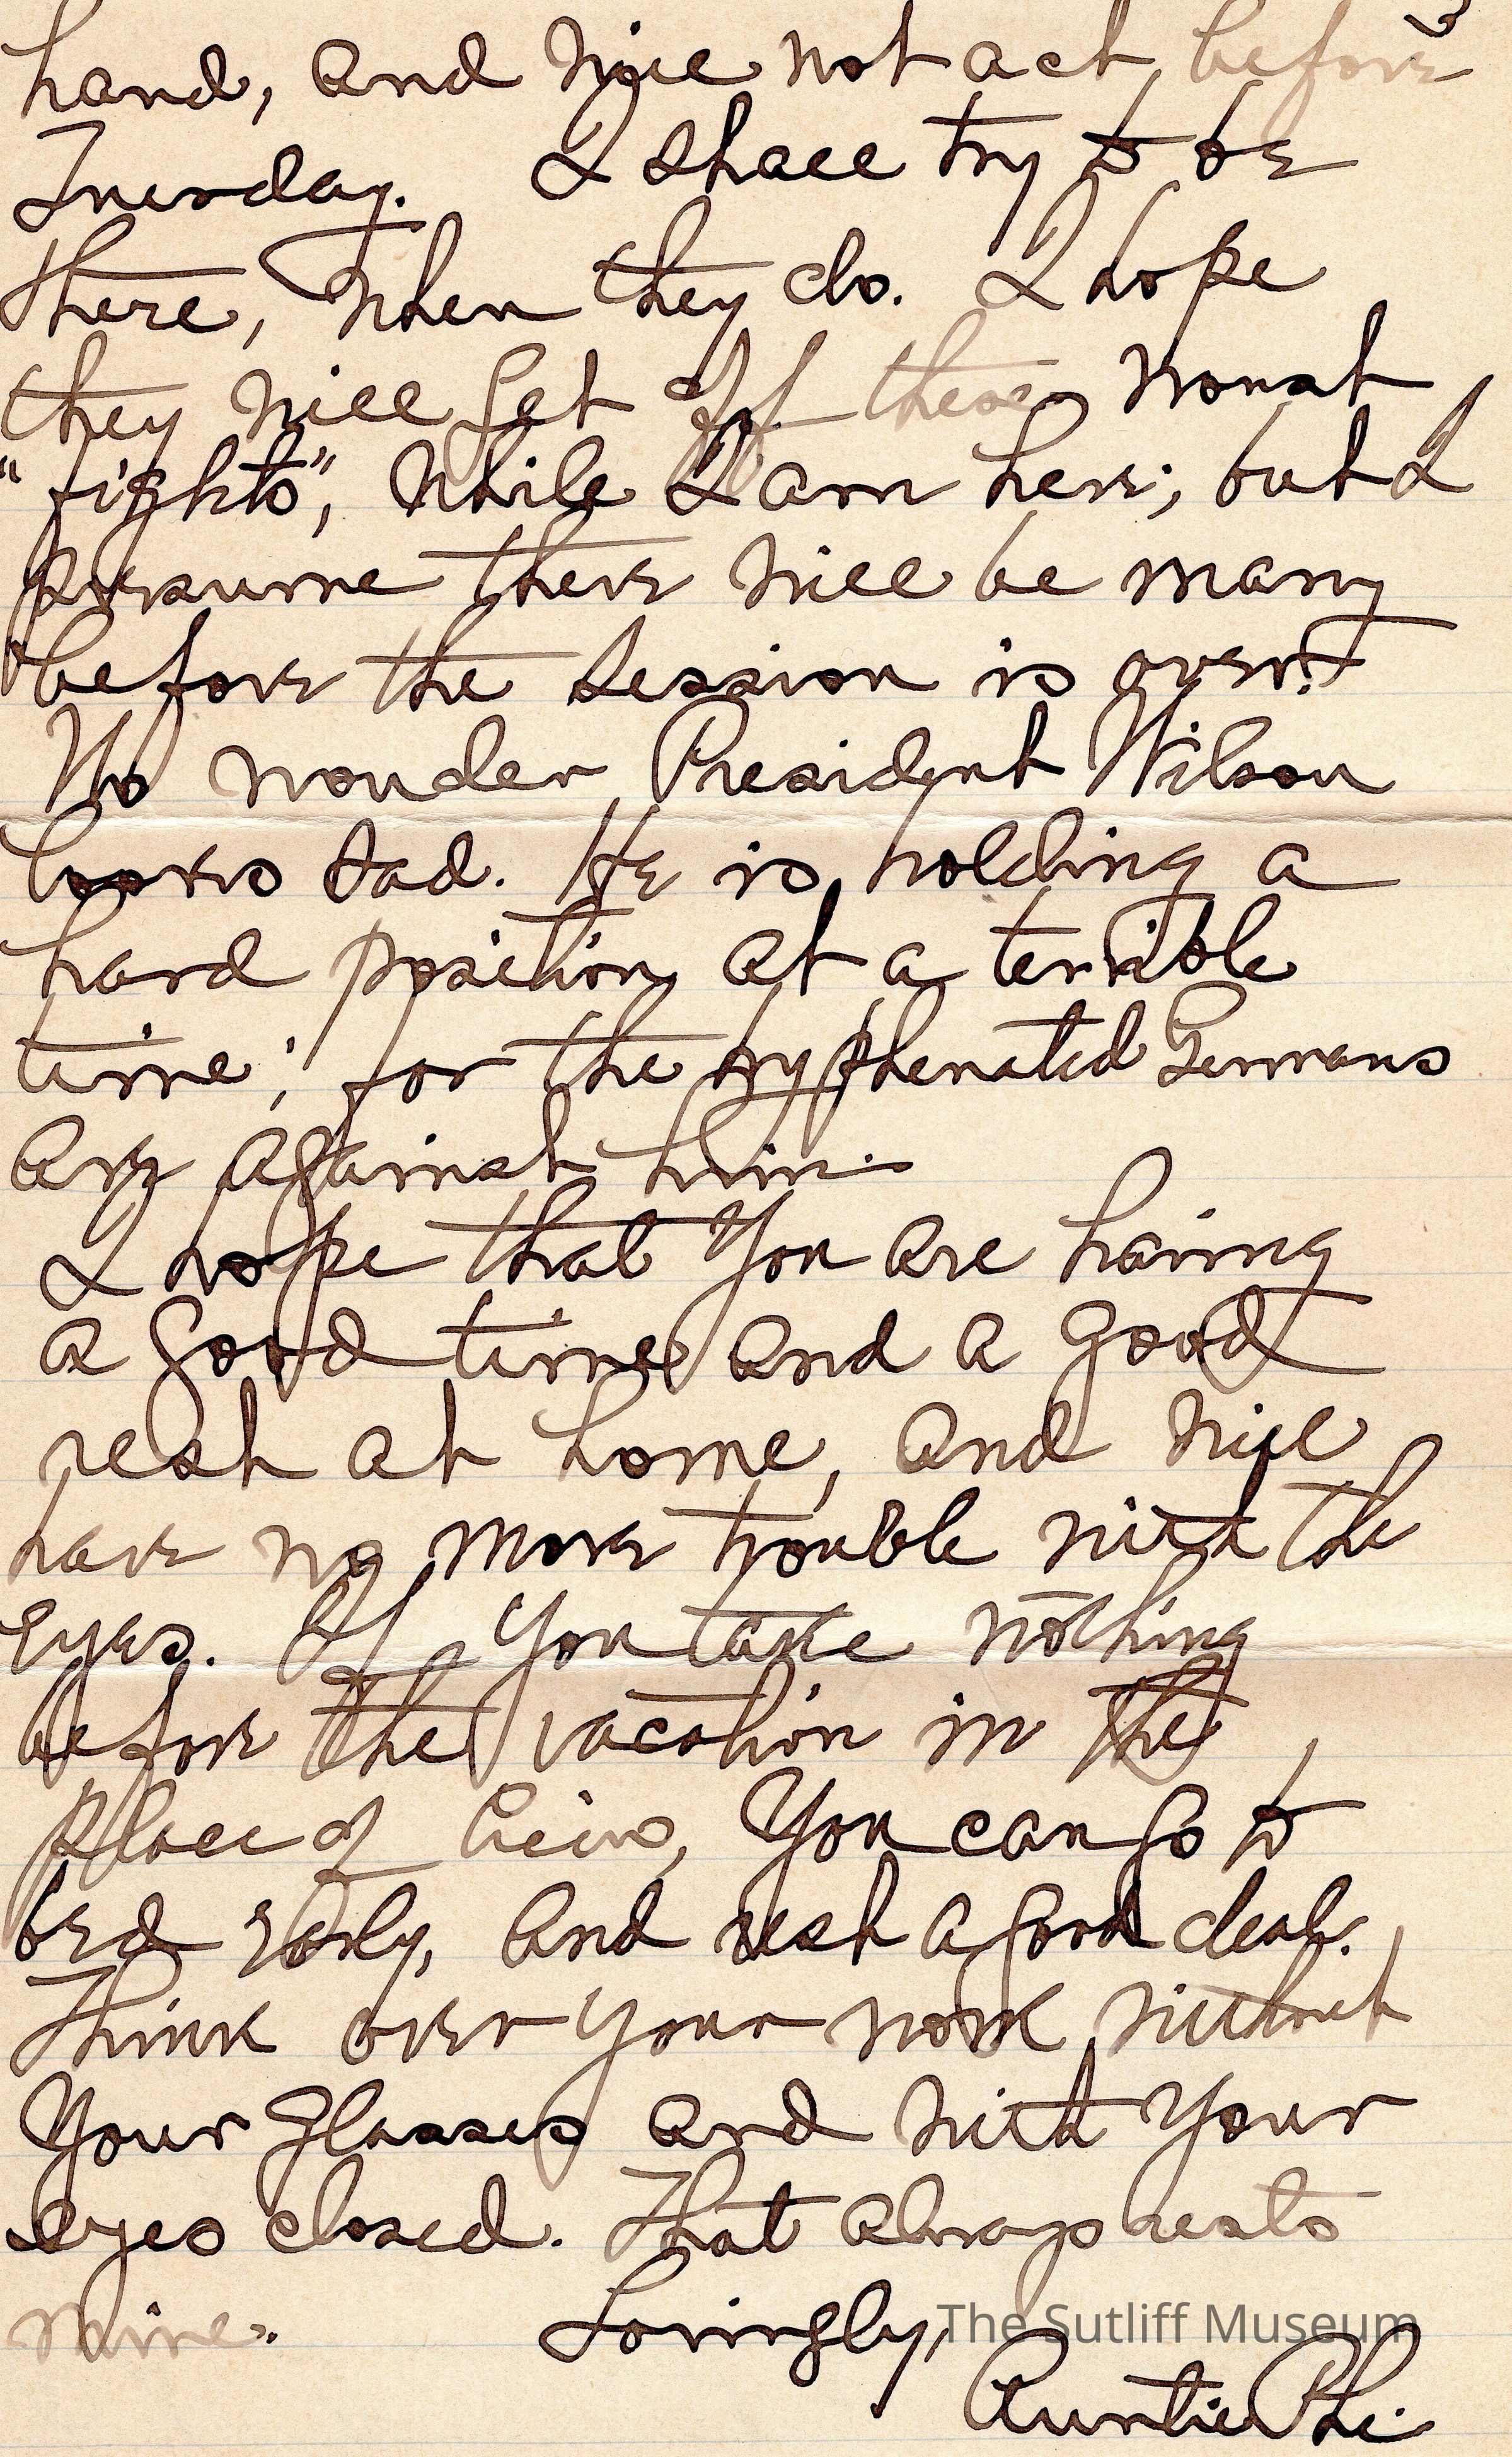 3
hand, and will not act before
Tuesday. I shall try to be
there, when they do. I hope
they will get off their worst
"fights", while I am here; but I
presume there will be many
before the session is over!
No wonder President Wilson
looks sad. He is holding a
hard position at a terrible
time; for the hyphenated Germans
are against him.
I hope that you are having
a good time and a good
rest at home, and will
have no more trouble with the
eyes. If you take nothing
before the vacation in the
place of Civics, you can go to
bed early, and rest a good deal.
Think over your work without
your glasses and with your
eyes closed. That always rests
mine.
Lovingly,
Auntie Phe.
The Sutliff Museum